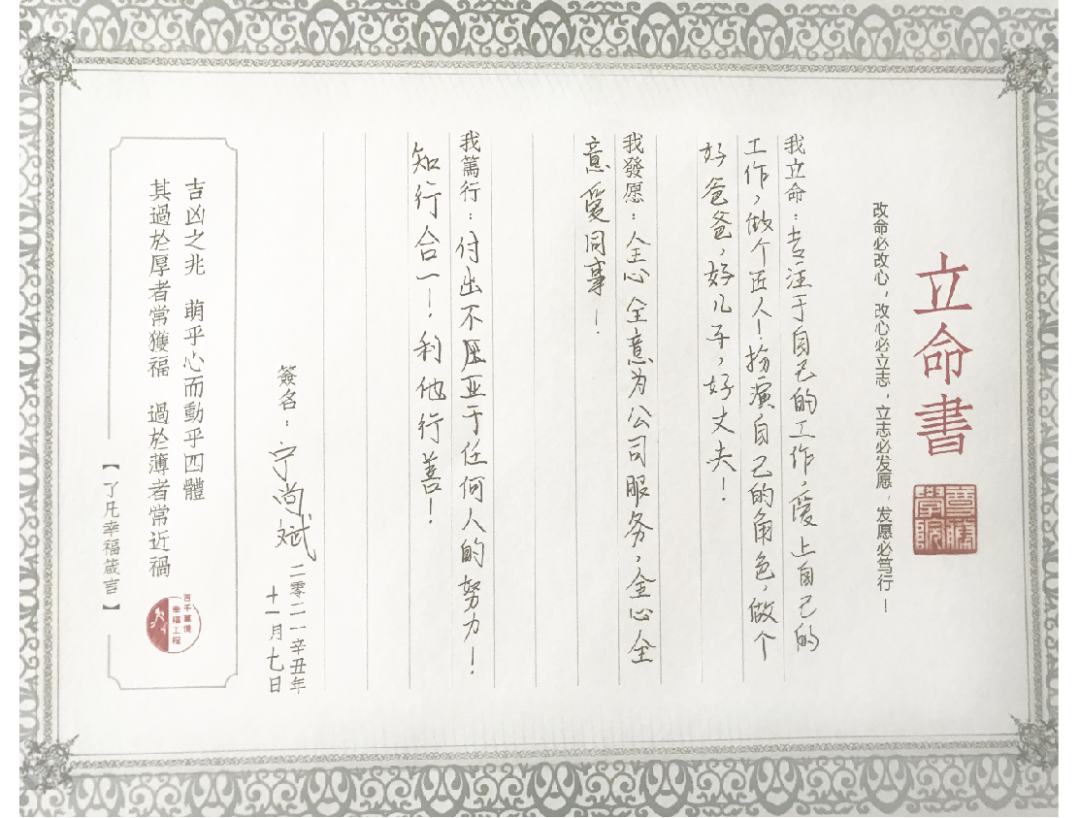 立命書
改命必改心，改心必立志，立志必发愿，发愿必笃行！
我立命：专注于自己的工作，爱上自己的
工作，做个匠人！扮演自己的角色，做个
好爸爸，好儿子，好丈夫！
我發愿：全心全意为公司服务，全心全
意爱同事！
我篤行：付出不亚于任何人的努力！
知行合一！利他行善！
簽名：宁尚斌
二零二一辛丑年
十一月七日
吉凶之兆 萌乎心而動乎四體
其過於厚者常獲福 過於薄者常近禍
百千萬億
幸福工程
【了凡幸福箴言】